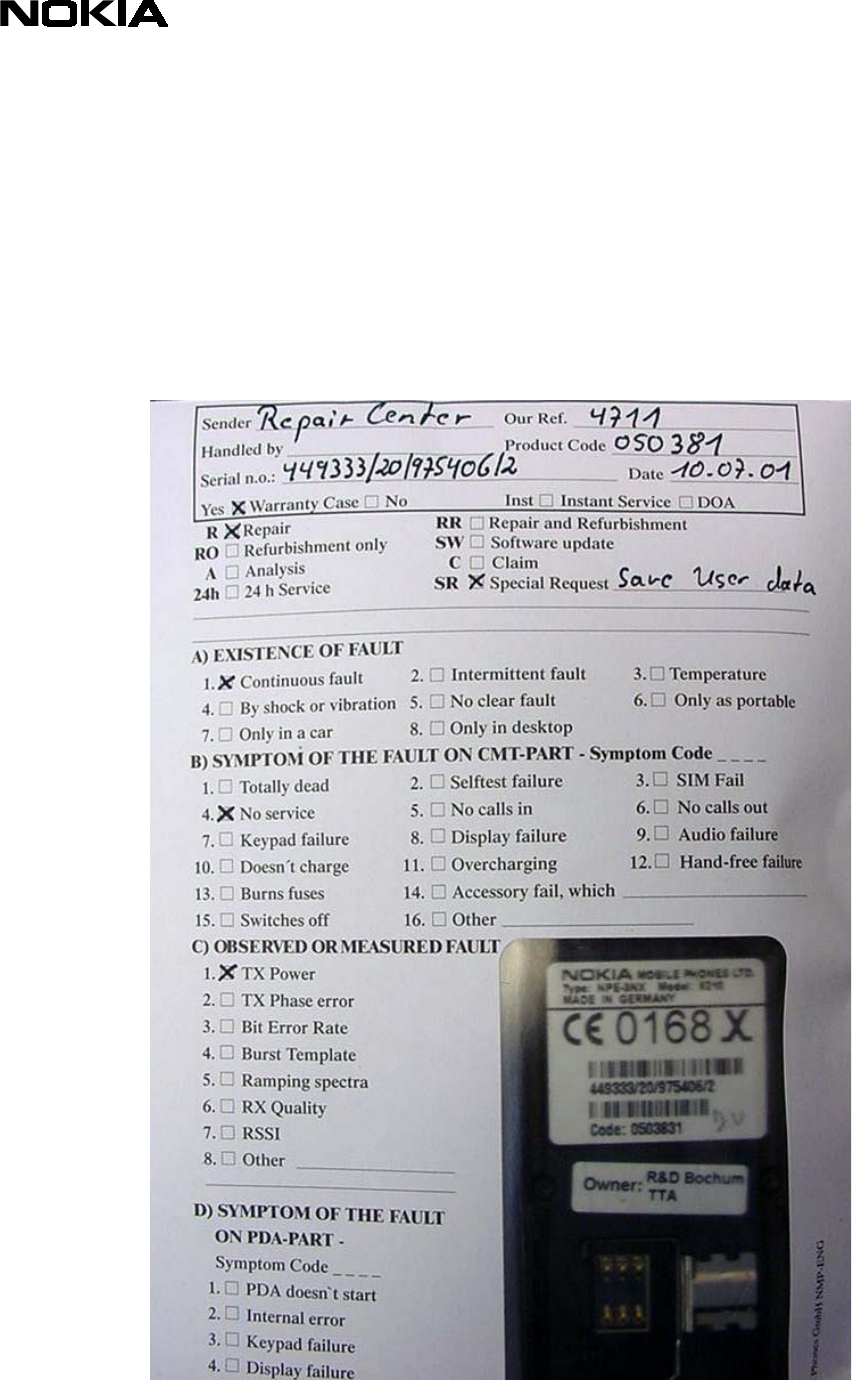 NOKIA
Sender Repair Center Our Ref. 4711
Handled by Product Code 050381
Serial n.o.: 449333/20/975406/2 Date 10.07.01
Yes X Warranty Case ☐ No Inst ☐ Instant Service ☐ DOA
R X Repair RR ☐ Repair and Refurbishment
RO ☐ Refurbishment only SW ☐ Software update
A ☐ Analysis C ☐ Claim
24h ☐ 24 h Service SR X Special Request Save User data
A) EXISTENCE OF FAULT
1. X Continuous fault 2. ☐ Intermittent fault 3. ☐ Temperature
4. ☐ By shock or vibration 5. ☐ No clear fault 6. ☐ Only as portable
7. ☐ Only in a car 8. ☐ Only in desktop
B) SYMPTOM OF THE FAULT ON CMT-PART - Symptom Code _ _ _ _
1. ☐ Totally dead 2. ☐ Selftest failure 3. ☐ SIM Fail
4. X No service 5. ☐ No calls in 6. ☐ No calls out
7. ☐ Keypad failure 8. ☐ Display failure 9. ☐ Audio failure
10. ☐ Doesn´t charge 11. ☐ Overcharging 12. ☐ Hand-free failure
13. ☐ Burns fuses 14. ☐ Accessory fail, which
15. ☐ Switches off 16. ☐ Other
C) OBSERVED OR MEASURED FAULT
1. X TX Power
2. ☐ TX Phase error
3. ☐ Bit Error Rate
4. ☐ Burst Template
5. ☐ Ramping spectra
6. ☐ RX Quality
7. ☐ RSSI
8. ☐ Other
D) SYMPTOM OF THE FAULT
ON PDA-PART -
Symptom Code _ _ _ _
1. ☐ PDA doesn`t start
2. ☐ Internal error
3. ☐ Keypad failure
4. ☐ Display failure
NOKIA MOBILE PHONES LTD.
Type: NPE-3NX Model: 6210
MADE IN GERMANY
CE 0168 X
449333/20/975406/2
Code: 0503831
Owner: R&D Bochum
TTA
Phones GmbH NMP-ENG